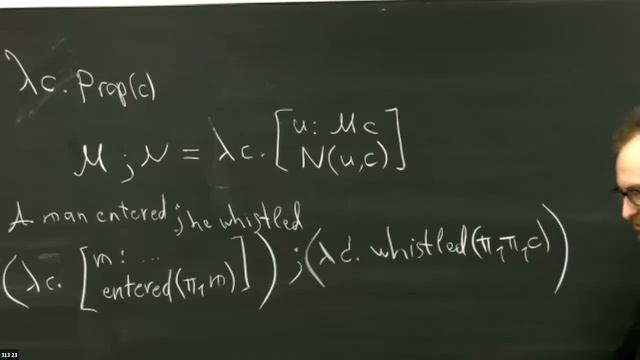 λc. Prop(c)
M ; N = λc. [ u : Mc
N(u,c) ]
A man entered ; he whistled
(λc. [ m : ...
entered(π₁m) ] ) ; (λc'. whistled(π₁π₁c))
313 23